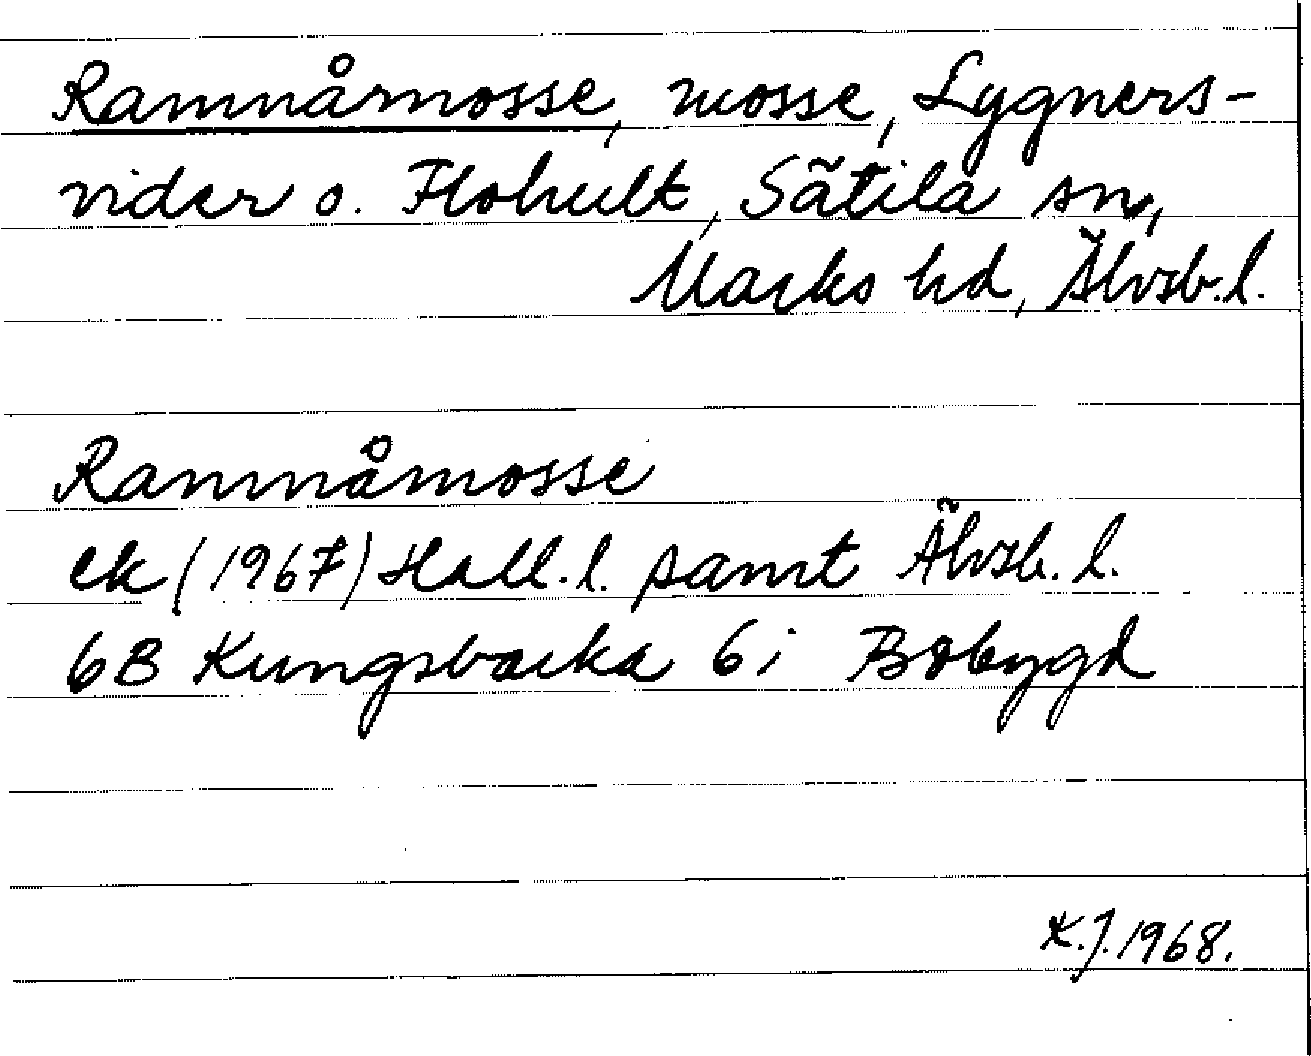 Ramnåmosse, mosse, Lygners-
vider o. Flohult, Sätila sn,
Marks hd, Älvsb. l.
Ramnåmosse
ek (1967) Hall. l. samt Älvsb. l.
6B Kungsbacka 6i Bobygd
K.J. 1968.